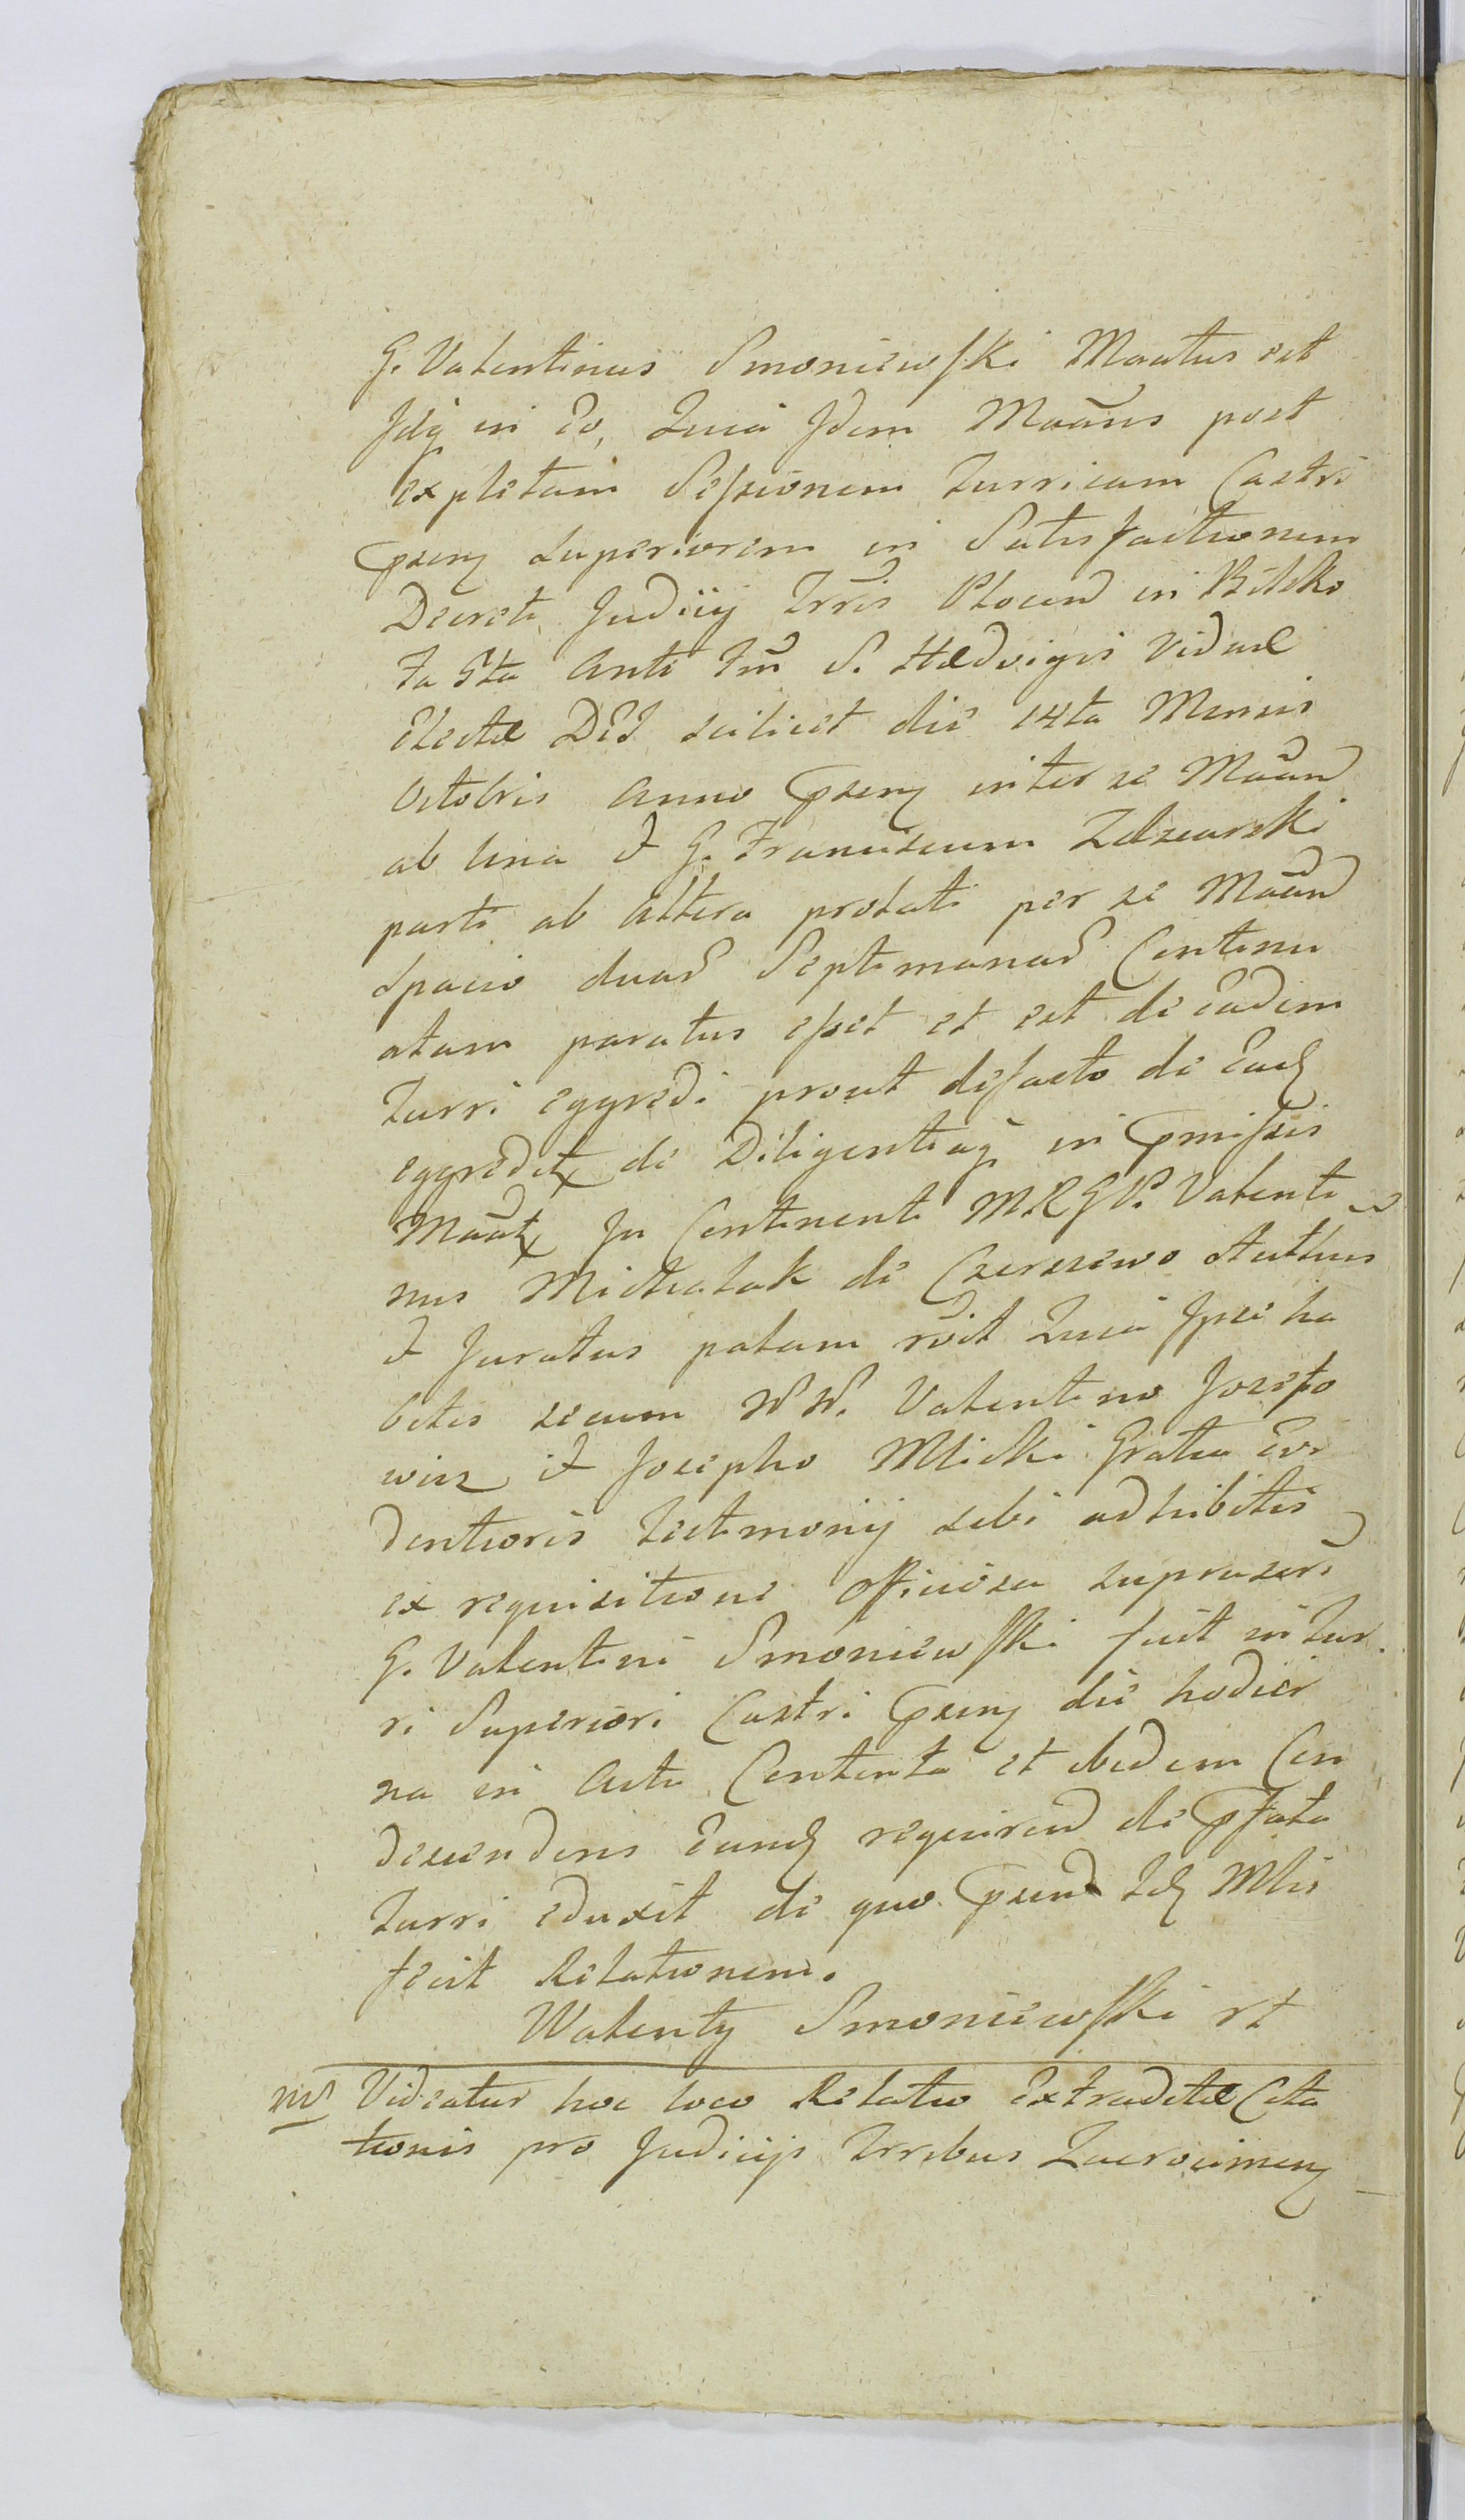 G. Valentinus Smoniewski Maātus est
Idq̃ in Eo, Quia Idem Maāns post
expletam Sessionem Turrium Castri
Pseny superiorem in Satisfactionem
Decreti Judiiy Trris Plocen in Bilsko
Fa 5ta Ante Fm̃ S. Hædvigis Viduæ
Electæ DEI scilicet die 14ta Mensis
Octobris Anno Pseny inter se Maān
ab Una & G. Franciscum Zdzearski
parte ab Altera prolati per se Maān
Spacio duar̃ Septimanar̃ Continu
atam paratus esset et est de Eadem
Turri eggredi prout defacto de Ead
eggredit de Diligentiaq̃ in Pmissis
Maāt In Continenti MRGP. Valenti
nus Michalak de Czerzewo Authus
& Juratus palam rŏit Quia Ipse ha
bitis secum NN. Valentino Josepo
wicz & Josepho Mlicki Gratia Evi
dentioris Testimonij sibi adhibitis
ex requisitione Officiosa suprascri
G. Valentini Smoniewski fuit in Tur
ri Superiori Castri Pseny die hodier
na in Actu Contenta et ibidem Con
descendens Eund requirend de Pfata
Turri eduxit de quo Psend Id Mlis
fecit Relationem.
Walenty Smoniewski rt
NB Videatur hoc loco Relatio Extraditæ Cita
tionis pro Judicijs Trribus Zacrocimeny